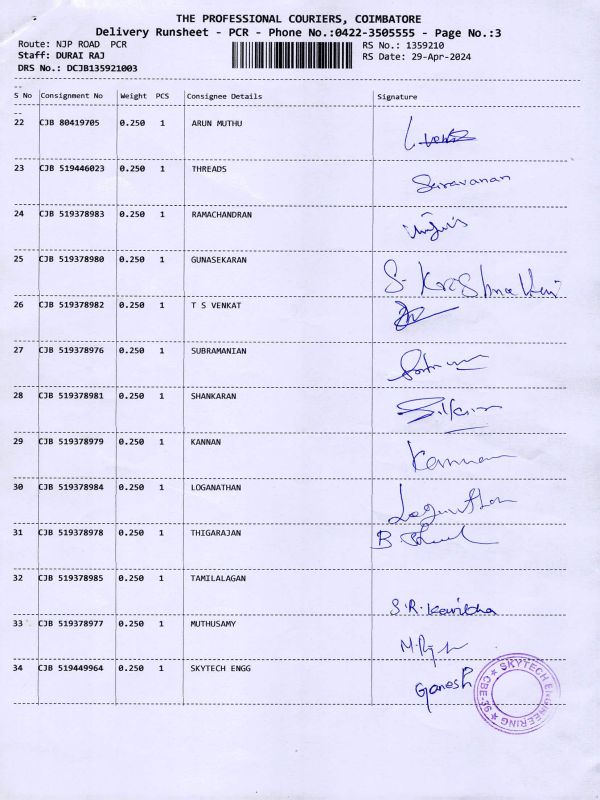 THE PROFESSIONAL COURIERS, COIMBATORE
Delivery Runsheet - PCR - Phone No.:0422-3505555 - Page No.:3
Route: NJP ROAD PCR RS No.: 1359210
Staff: DURAI RAJ RS Date: 29-Apr-2024
DRS No.: DCJB135921003
S No Consignment No Weight PCS Consignee Details Signature
22 CJB 80419705 0.250 1 ARUN MUTHU
23 CJB 519446023 0.250 1 THREADS Saravanan
24 CJB 519378983 0.250 1 RAMACHANDRAN
25 CJB 519378980 0.250 1 GUNASEKARAN
26 CJB 519378982 0.250 1 T S VENKAT
27 CJB 519378976 0.250 1 SUBRAMANIAN
28 CJB 519378981 0.250 1 SHANKARAN
29 CJB 519378979 0.250 1 KANNAN Kannan
30 CJB 519378984 0.250 1 LOGANATHAN Loganathan
31 CJB 519378978 0.250 1 THIGARAJAN B
32 CJB 519378985 0.250 1 TAMILALAGAN S.R. Kavitha
33 CJB 519378977 0.250 1 MUTHUSAMY
34 CJB 519449964 0.250 1 SKYTECH ENGG Ganesh
SKYTECH ENGINEERING CBE-35